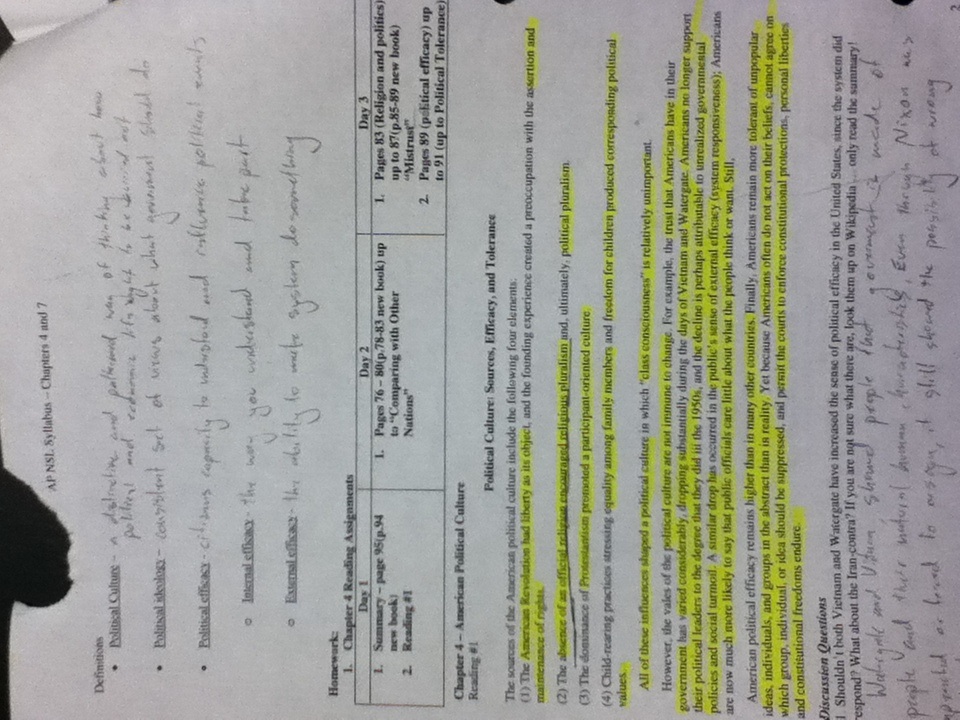 AP NSL Syllabus – Chapters 4 and 7
Definitions
• Political Culture – a distinctive and patterned way of thinking about how
political and economic life ought to be carried out
• Political ideology – consistent set of views about what government should do
• Political efficacy – citizens capacity to understand and influence political events
o Internal efficacy - the way you understand and take part
o External efficacy - the ability to make system do something
Homework:
1. Chapter 4 Reading Assignments
Day 1
1. Summary – page 95(p.94
new book)
2. Reading #1
Day 2
1. Pages 76 – 80(p.78-83 new book) up
to “Comparing with Other
Nations”
Day 3
1. Pages 83 (Religion and politics)
up to 87(p.85-89 new book)
“Mistrust”
2. Pages 89 (political efficacy) up
to 91 (up to Political Tolerance)
Chapter 4 – American Political Culture
Reading #1
Political Culture: Sources, Efficacy, and Tolerance
The sources of the American political culture include the following four elements:
(1) The American Revolution had liberty as its object, and the founding experience created a preoccupation with the assertion and
maintenance of rights.
(2) The absence of an official religion encouraged religious pluralism and, ultimately, political pluralism.
(3) The dominance of Protestantism promoted a participant-oriented culture.
(4) Child-rearing practices stressing equality among family members and freedom for children produced corresponding political
values.
All of these influences shaped a political culture in which “class consciousness” is relatively unimportant.
However, the vales of the political culture are not immune to change. For example, the trust that Americans have in their
government has varied considerably, dropping substantially during the days of Vietnam and Watergate. Americans no longer support
their political leaders to the degree that they did iii the 1950s, and the decline is perhaps attributable to unrealized governmental
policies and social turmoil. A similar drop has occurred in the public’s sense of external efficacy (system responsiveness); Americans
are now much more likely to say that public officials care little about what the people think or want. Still,
American political efficacy remains higher than in many other countries. Finally, Americans remain more tolerant of unpopular
ideas, individuals, and groups in the abstract than in reality. Yet because Americans often do not act on their beliefs, cannot agree on
which group, individual, or idea should be suppressed, and permit the courts to enforce constitutional protections, personal liberties
and constitutional freedoms endure.
Discussion Questions
1. Shouldn’t both Vietnam and Watergate have increased the sense of political efficacy in the United States, since the system did
respond? What about the Iran-contra? If you are not sure what there are, look them up on Wikipedia ... only read the summary!
Watergate and Vitnam, showed people that government is made of
people and their natural human characteristics. Even through Nixon was
or forced to resign, it still showed the possibility of wrong
2